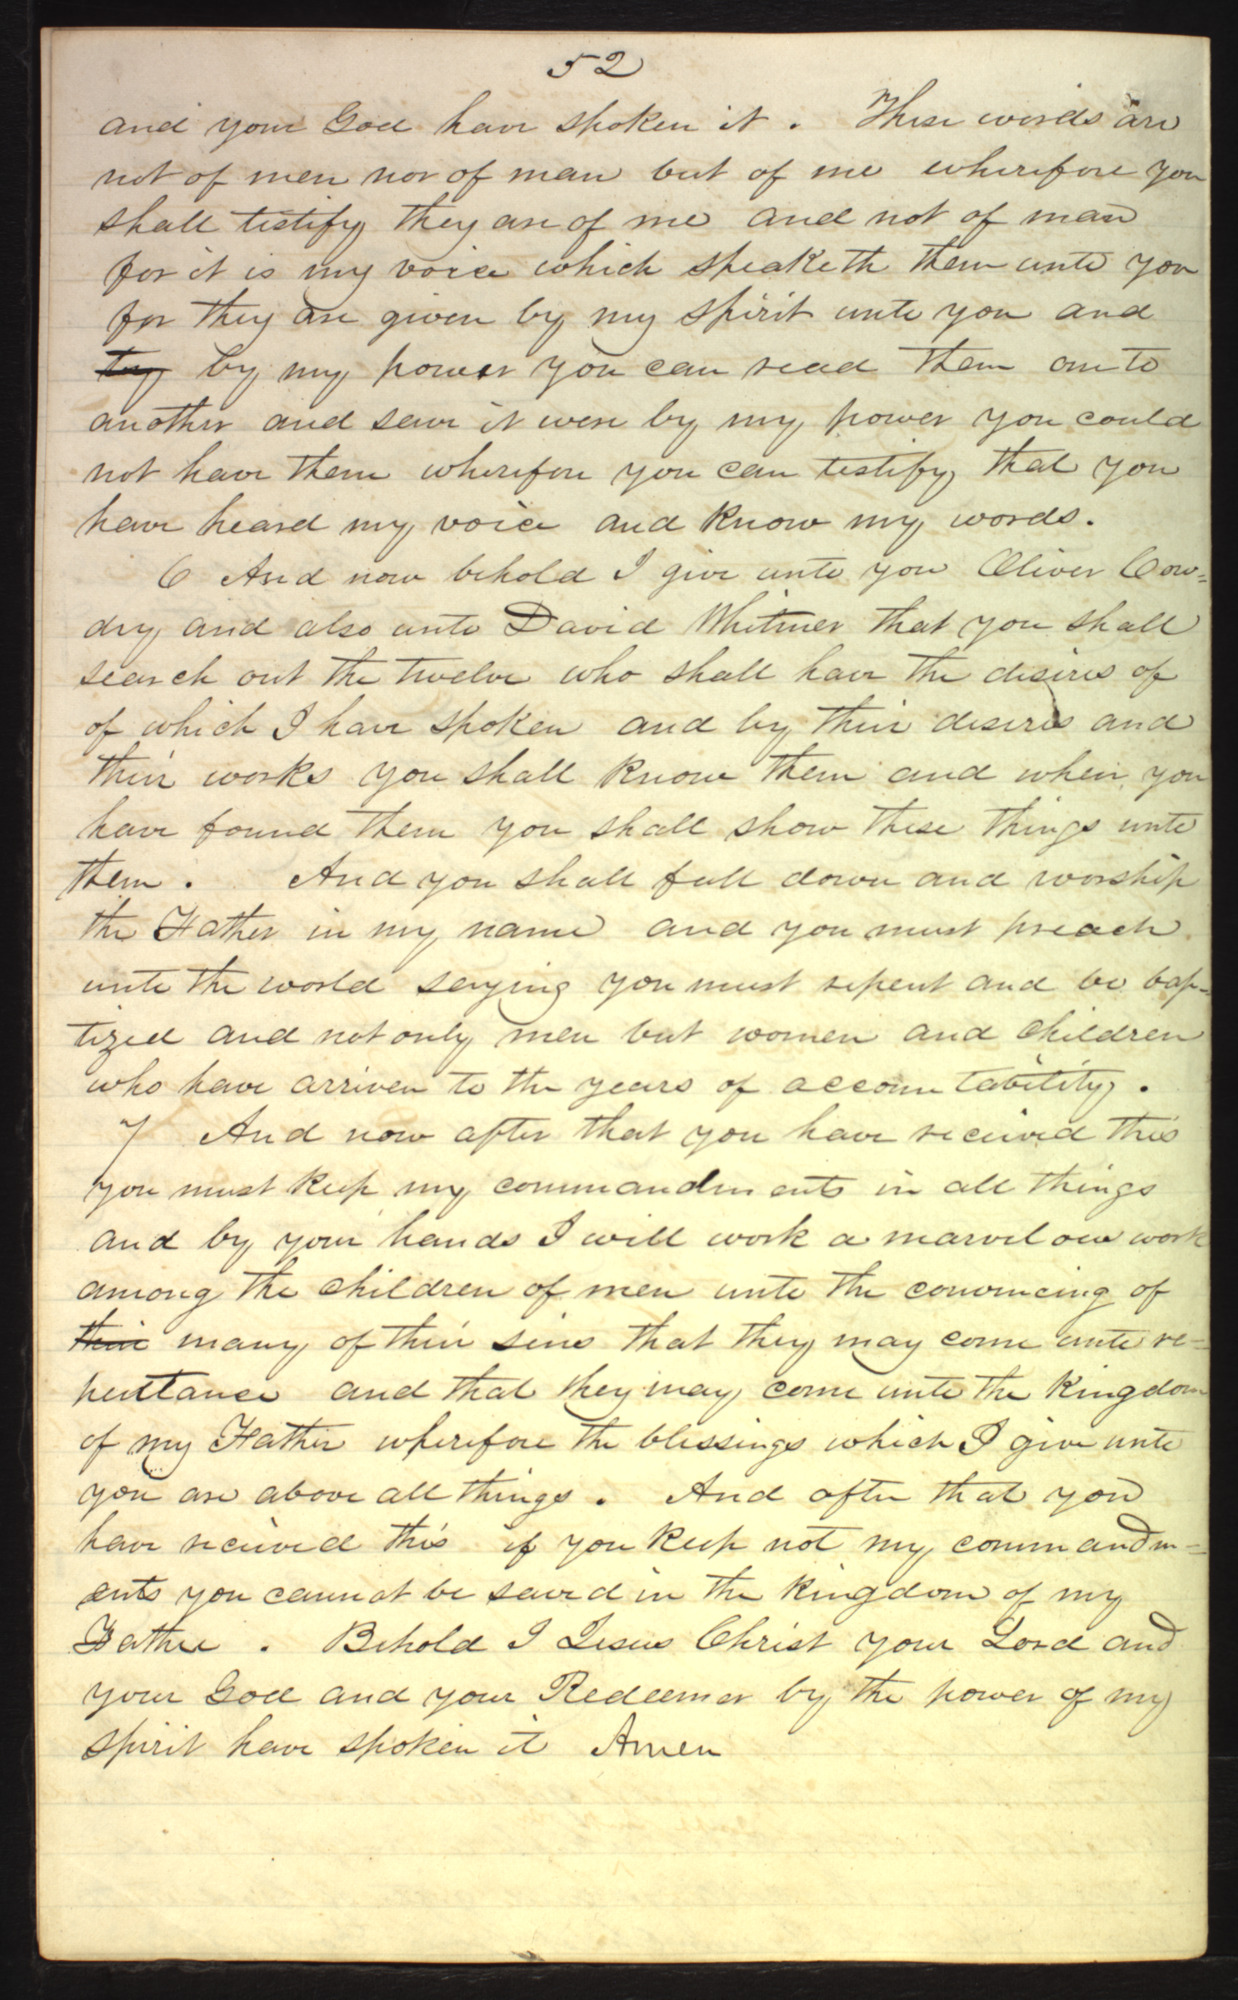 52
and your God have spoken it. These words are
not of men nor of man but of me wherefore you
shall testify they are of me and not of man
for it is my voice which speaketh them unto you
for they are given by my spirit unto you and
by my power you can read them one to
another and save it were by my power you could
not have them wherefore you can testify that you
have heard my voice and know my words.
6 And now behold I give unto you Oliver Cow=
dry and also unto David Whitmer that you shall
search out the twelve who shall have the desires of
of which I have spoken and by their desires and
their works you shall know them and when you
have found them you shall show these things unto
them. And you shall fall down and worship
the Father in my name and you must preach
unto the world saying you must repent and be bap-
tized and not only men but women and children
who have arriven to the years of accountability.
7 And now after that you have received this
you must keep my commandments in all things
and by your hands I will work a marvelous work
among the children of men unto the convincing of
their many of their sins that they may come unto re-
pentance and that they may come unto the kingdom
of my Father wherefore the blessings which I give unto
you are above all things. And after that you
have received this if you keep not my commandm=
ents you cannot be saved in the kingdom of my
Father. Behold I Jesus Christ your Lord and
your God and your Redeemer by the power of my
spirit have spoken it Amen